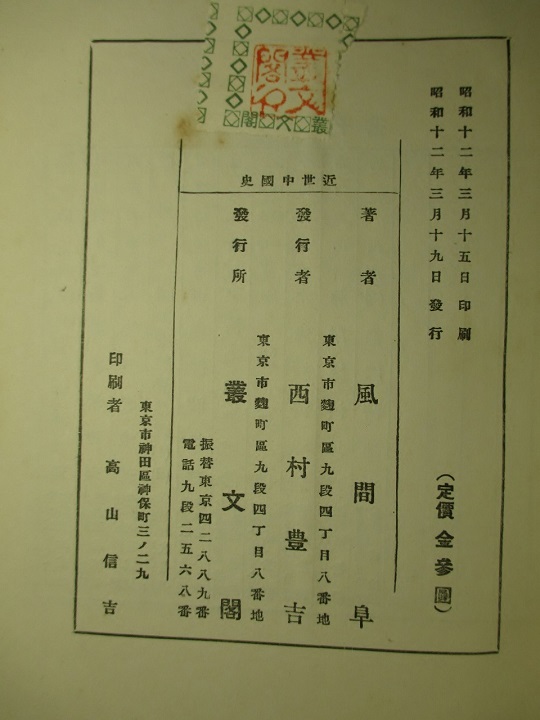 叢文閣
昭和十二年三月十五日印刷
昭和十二年三月十九日發行
(定價金參圓)
近世中國史
著者 風間阜
東京市麴町區九段四丁目八番地
發行者 西村豊吉
東京市麴町區九段四丁目八番地
發行所 叢文閣
振替東京四二八八九番
電話九段二五六八番
東京市神田區神保町三ノ二九
印刷者 高山信吉